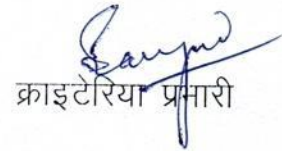 क्राइटेरिया प्रभारी